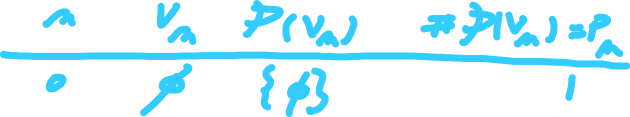 n Vₙ 𝒫(Vₙ) #𝒫(Vₙ) = Pₙ
0 ∅ {∅} 1